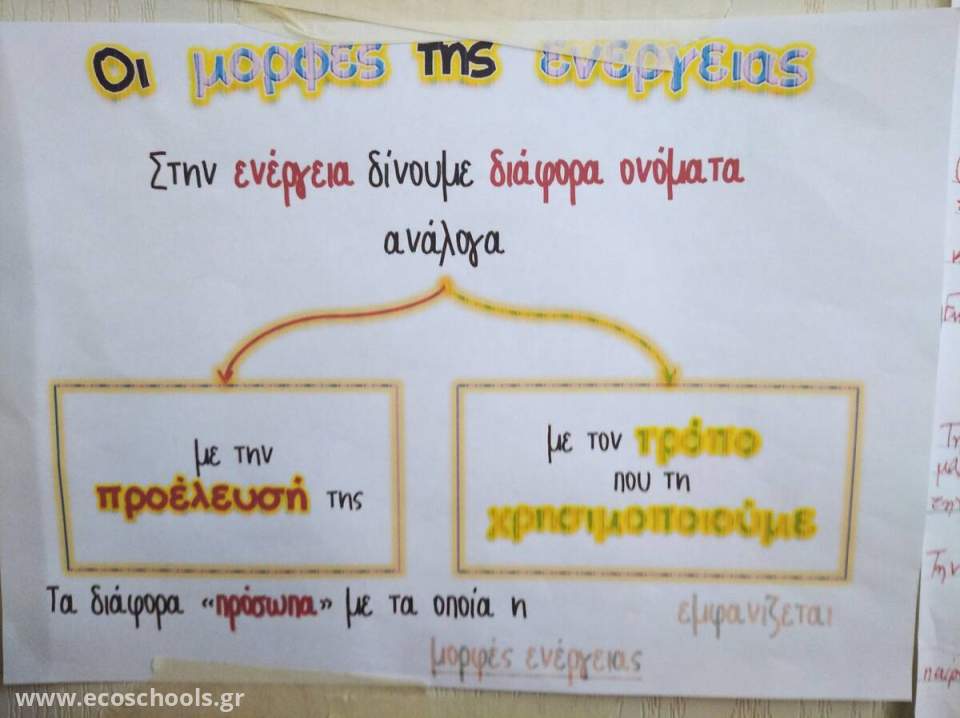 Οι μορφές της ενέργειας
Στην ενέργεια δίνουμε διάφορα ονόματα
ανάλογα
με την
προέλευσή της
με τον τρόπο
που τη
χρησιμοποιούμε
Τα διάφορα «πρόσωπα» με τα οποία η εμφανίζεται
μορφές ενέργειας
www.ecoschools.gr